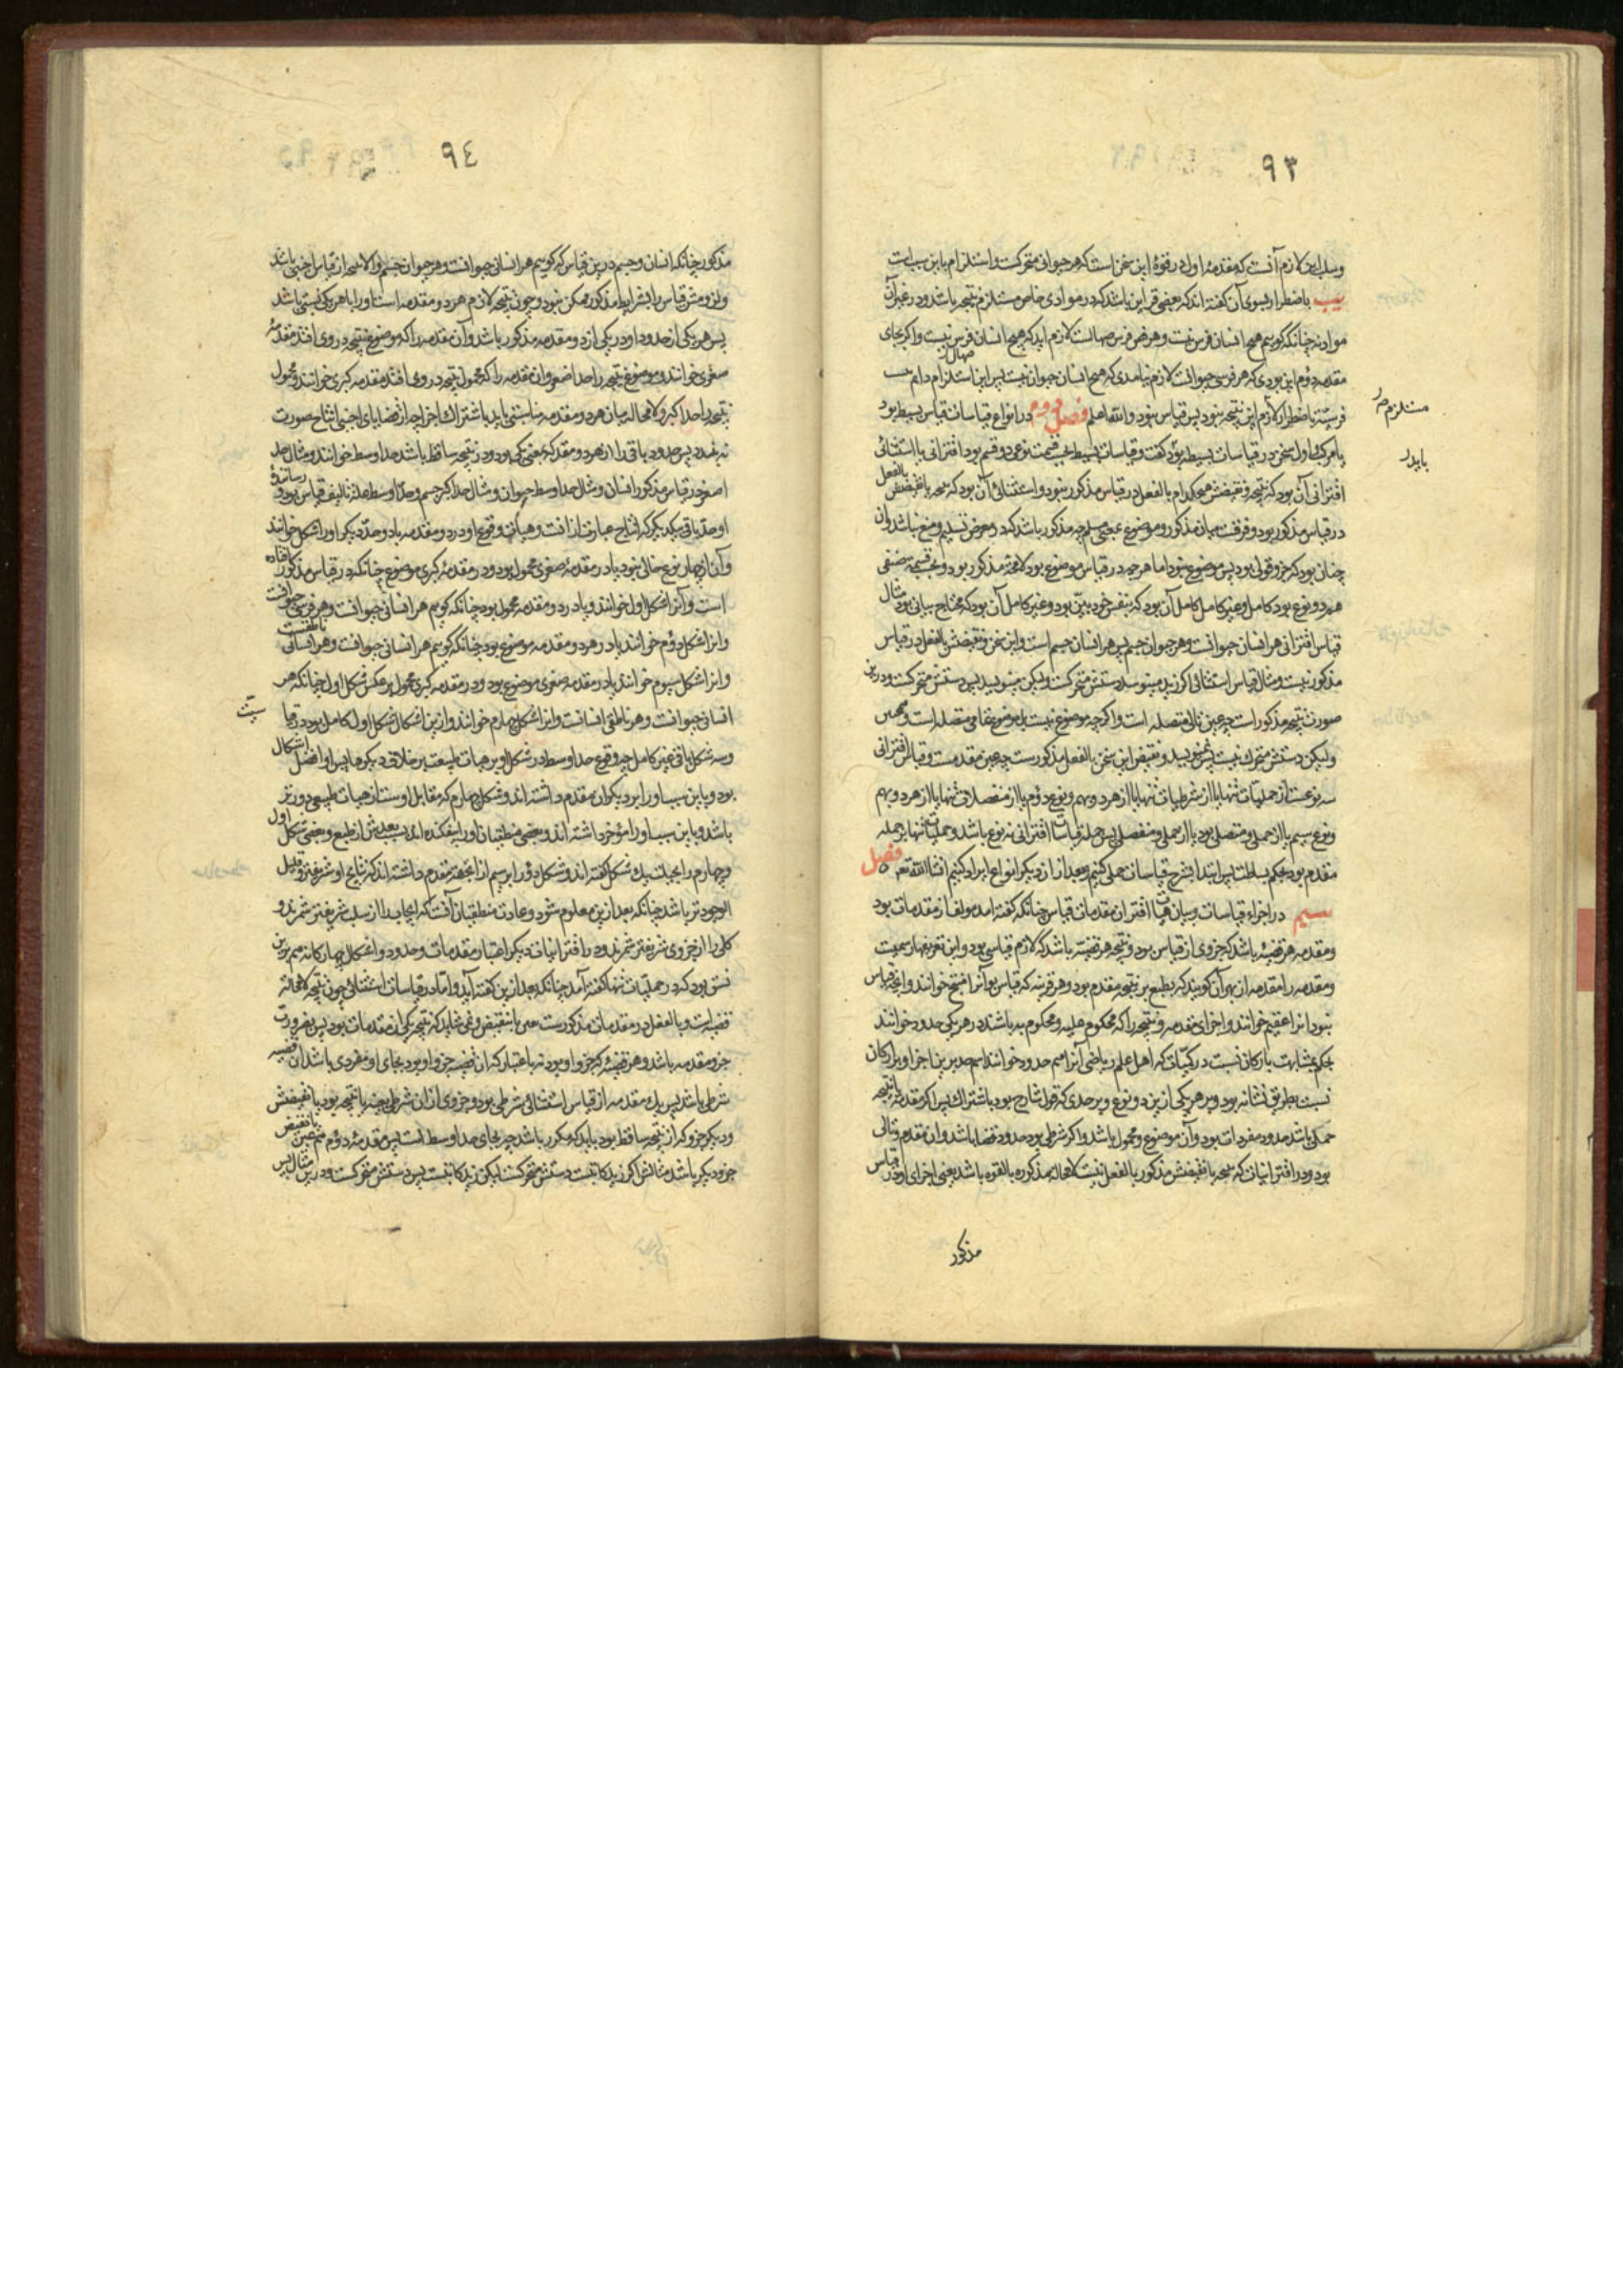 ۹۳
وسلب این لازم آنست که مقدمهٔ اول در قوهٔ این سخن است که هر حیوانی متحرکست و استلزام باین سبب است
باضطرار بسوی آن گفته‌اند که بعضی قراین باشد که در موادی خاص مستلزم نتیجه باشد و در غیر آن
مواد نه چنانکه گوییم هیچ انسان فرس نیست و هر فرس صهالست لازم اید که هیچ انسان صهال نیست و اکر بجای
مقدمه دوم این بودی که هر فرسی حیوانست لازم نیامدی که هیچ انسان حیوان نیست پس این استلزام دایم نیست
مستلزم
باضطرار لازم این نتیجه نبود پس قیاس نبود والله اعلم فصل دوم در انواع قیاسات قیاس بسیط بود
یا مرکب و اول سخن در قیاسات بسیط بود گفت و قیاسات بسیط بحسب قسمت نوعی دو قسم بود اقترانی یا استثنائی
باید
اقترانی آن بود که نتیجه و نقیضش هیچکدام بالفعل در قیاس مذکور نبود و استثنائی آن بود که نتیجه یا نقیضش بالفعل
در قیاس مذکور بود و فرقست میان مذکور و موضوع یعنی مسلم چه مذکور باشد که در معرض تسلیم و منع نباشد و آن
چنان بود که جزو قولی بود پس موضوع نبود اما هر چه در قیاس موضوع بود لامحاله مذکور بود و بحسب قسمت صنفی
هر دو نوع بود کامل و غیر کامل کامل آن بود که بنفس خود بیّن بود و غیر کامل آن بود که محتاج بیانی بود مثال
قیاس اقترانی هر انسان حیوانست و هر حیوان جسم پس هر انسان جسم است و این سخن و نقیضش بالفعل در قیاس
مذکور نیست و مثال قیاس استثنائی اکر زید مینویسد دستش متحرکست ولیکن مینویسد پس دستش متحرکست و درین
صورت نتیجه مذکور است چه عین تالی متصله است و اکرچه موضوع نیست بل موضوع تمامی متصله است و همچنین
ولیکن دستش متحرک نیست پس نمینویسد و نقیض این سخن بالفعل مذکورست چه عین مقدمست و قیاس اقترانی
سه نوعست از حملیات تنها یا از شرطیات تنها یا از هر دو بهم و نوع دوم یا از متصلات تنها یا از هر دو بهم
و نوع سیم یا از حملی و متصلی بود یا از حملی و منفصلی پس جمله قیاسات اقترانی نه نوع باشد و حملیات تنها بر جمله
مقدم بود بحکم بساطت پس ابتدا بشرح قیاسات حملی کنیم و بعد از ان دیگر انواع ایراد کنیم انشاالله تعه فصل
سیم در اجزاء قیاسات و بیان هیات اقتران مقدمات قیاس چنانکه گفته امد مولف از مقدمات بود
و مقدمه هر قضیهٔ باشد که جزوی از قیاس بود و نتیجه هر قضیه باشد که لازم قیاسی بود و این تعریفها رسمیست
و مقدمه را مقدمه از بهر آن گویند که بطبع بر نتیجه مقدم بود و هر قرینه که قیاس بود آنرا منتج خوانند و انچه قیاس
نبود انرا عقیم خوانند و اجزای مقدمه و نتیجه را که محکوم علیه و محکوم به باشند در هر یکی حدود خوانند
بحکم مشابهت بارکان نسبت در کمیّات که اهل علم ریاضی آنرا هم حدود خوانند اسم حد برین اجزا و بر ارکان
نسبت بطریق تشابه بود و بر هر یکی ازین دو نوع و بر حدی که قول شارح بود باشتراک پس اکر مقدمه یا نتیجه
حملی باشد حدود مفردات بود و آن موضوع و محمول باشد و اکر شرطی بود حدود قضایا باشد و ان مقدم و تالی
بود و در اقترانیات که نتیجه یا نقیضش مذکور بالفعل نیست لامحاله مذکوره بالقوه باشد یعنی اجزای او در قیاس
مذکور
۹٤
مذکور چنانکه انسان و جسم درین قیاس که گوییم هر انسانی حیوانست و هر حیوان جسم و الا نتیجه از قیاس اجنبی باشد
و لزومش قیاس را بشرایط مذکور ممکن نبود و چون نتیجه لازم هر دو مقدمه است او را با هر یکی نسبتی باشد
پس هر یکی از حدود او در یکی از دو مقدمه مذکور باشد و آن مقدمه را که موضوع نتیجه در وی افتد مقدمهٔ
صغری خوانند و موضوع نتیجه را حد اصغر و ان مقدمه را که محمول نتیجه در وی افتد مقدمه کبری خوانند و محمول
نتیجه را حد اکبر و لامحاله میان هر دو مقدمه مناسبتی باید باشتراک اجزا چه از قضایای اجنبی انتاج صورت
نه بندد پس حدود باقی را از هر دو مقدمه که یکی بود و در نتیجه ساقط باشد حد اوسط خوانند و مثال حد
اصغر در قیاس مذکور انسان و مثال حد اوسط حیوان و مثال حد اکبر جسم و حد اوسط علة تالیف قیاس بود و رسانندهٔ
او حد باقی بیکدیگر که انتاج عبارت از انست و هیات وقوع او در دو مقدمه با دو حدّ دیکر او را شکل خوانند
و آن از چهار نوع خالی نبود یا در مقدمهٔ صغری محمول بود و در مقدمهٔ کبری موضوع چنانکه در قیاس مذکور افتاده
است و آنرا شکل اول خوانند و یا در هر دو مقدمه محمول بود چنانکه گوییم هر انسانی حیوانست و هر فرسی حیوانست
و انرا شکل دوم خوانند یا در هر دو مقدمه موضوع بود چنانکه گوییم هر انسانی حیوانست و هر انسانی ناطقست
و انرا شکل سیوم خوانند یا در مقدمه صغری موضوع بود و در مقدمه کبری محمول بر عکس شکل اول چنانکه هر
انسانی حیوانست و هر ناطقی انسانست و انرا شکل چهارم خوانند و ازین اشکال شکل اول کامل بود در قیاسیت
و سه شکل باقی غیر کامل چه وقوع حد اوسط در شکل اول بر هیات طبیعیست بر خلاف دیگرها پس او افضل اشکال
بود و باین سبب او را بر دیکران مقدم داشته‌اند و شکل چهارم که مقابل اوست از هیات طبیعی دورتر
باشد و باین سبب او را مؤخر داشته‌اند و بعضی منطقیان او را بیفکنده‌اند بسبب بعدش از طبع و بعضی شکل اول
و چهارم را بجای یک شکل گفته‌اند و شکل دوم را بر سیم از انجهة مقدم داشته‌اند که نتایج او شریفتر و قلیل
الوجودتر باشد چنانکه بعد ازین معلوم شود و عادت منطقیان آنست که ایجاب را از سلب شریفتر شمرند و
کلی را از جزوی شریفتر شمرند و در اقترانیات دیکر اعتبار مقدمات و حدود و اشکال چهارکانه هم برین
نسق بود که در حملیات تنها گفته آمد چنانکه بعد ازین گفته آید و اما در قیاسات استثنائی چون نتیجه لامحاله
قضیه است و بالفعل در مقدمات مذکورست بعین یا بنقیض و نمی‌شاید که نتیجه یکی از مقدمات بود پس بضرورت
جزو مقدمه باشد و هر قضیهٔ که جزو او بود نه باعتبار که ان قضیه جزو او بود بجای او مفردی باشد ان قضیه
شرطی باشد پس یک مقدمه از قیاس استثنائی شرطی بود و جزوی از ان شرطی بعینه یا نتیجه بود یا نقیضش
و دیگر جزو که از نتیجه ساقط بود باید که مکرر باشد چه بجای حد اوسط است پس مقدمهٔ دوم هم عین یا نقیض
جزو دیکر باشد مثالش اکر زید کاتبست دستش متحرکست لیکن زید کاتبست پس دستش متحرکست و درین مثال پس